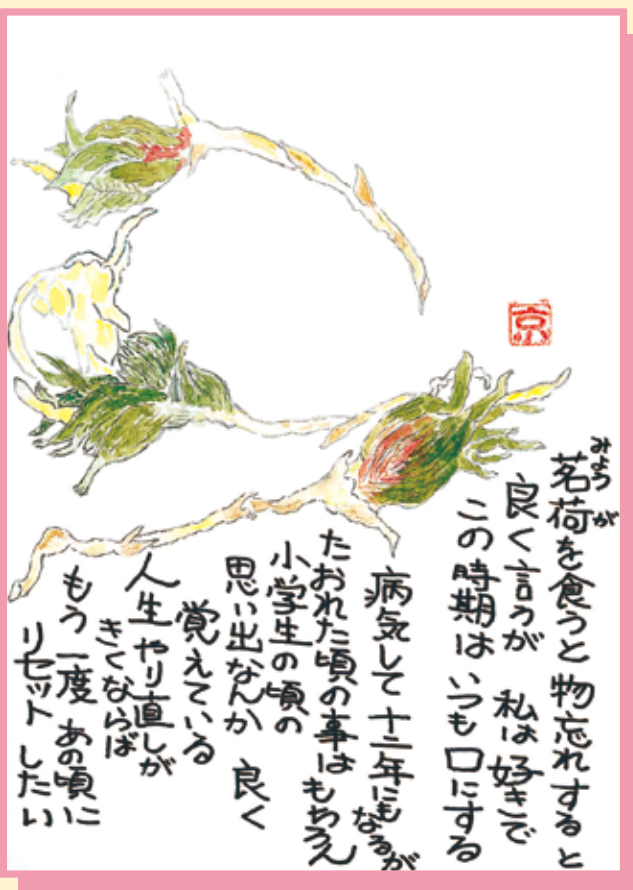 京
茗荷を食うと物忘れすると
みょうが
良く言うが 私は好きで
この時期は いつも口にする
病気して十二年にもなるが
たおれた頃の事はもちろん
小学生の頃の
思い出なんか 良く
覚えている
人生やり直しが
きくならば
もう一度 あの頃に
リセットしたい